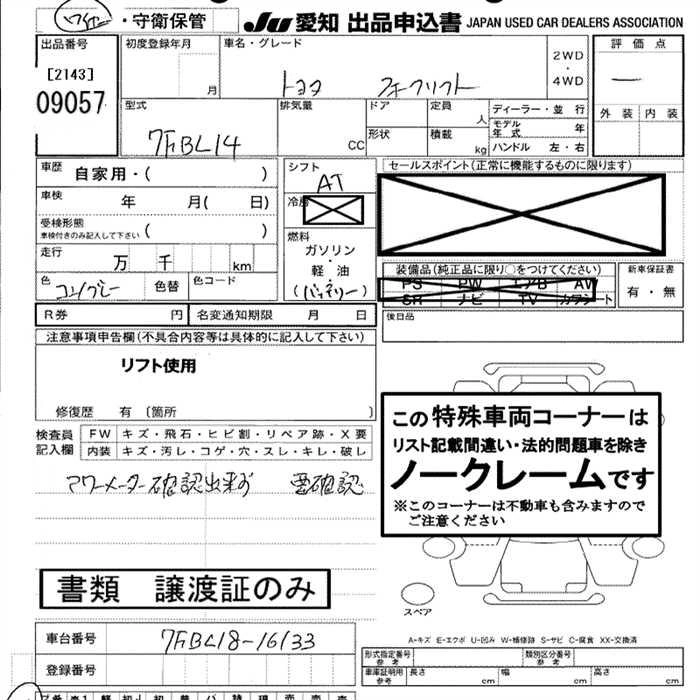 ・守衛保管
JU 愛知 出品申込書 JAPAN USED CAR DEALERS ASSOCIATION
出品番号
[2143]
09057
初度登録年月
月
車名・グレード
トヨタ フォークリフト
2WD
・
4WD
評価点
外装 内装
型式
7FBL14
排気量
CC
ドア
形状
定員
人
積載
kg
ディーラー・並 行
モデル
年 式
年
ハンドル 左・右
車歴
自家用・( )
車検
年 月( 日)
受検形態
車検付きのみ記入して下さい ( )
走行
万 千 km
色
コン/グレー
色替
色コード
シフト
AT
冷房
燃料
ガソリン
・
軽・油
(バッテリー)
セールスポイント(正常に機能するものに限ります)
装備品(純正品に限り○をつけてください)
PS PW エアB AW
SR ナビ TV カワシート
新車保証書
有・無
後日品
R券 円
名変通知期限 月 日
注意事項申告欄(不具合内容等は具体的に記入して下さい)
リフト使用
修復歴 有 〔箇所 〕
検査員
記入欄
FW キズ・飛石・ヒビ割・リペア跡・X要
内装 キズ・汚レ・コゲ・穴・スレ・キレ・破レ
アワーメーター確認出来ず 要確認
この特殊車両コーナーは
リスト記載間違い・法的問題車を除き
ノークレームです
※このコーナーは不動車も含みますので
ご注意ください
書類 譲渡証のみ
スペア
A-キズ E-エクボ U-凹み W-補修跡 S-サビ C-腐食 XX-交換済
車台番号
7FBL18-16133
登録番号
形式指定番号
参 考
類別区分番号
参 考
車庫証明用
参 考
長さ cm
幅 cm
高さ cm